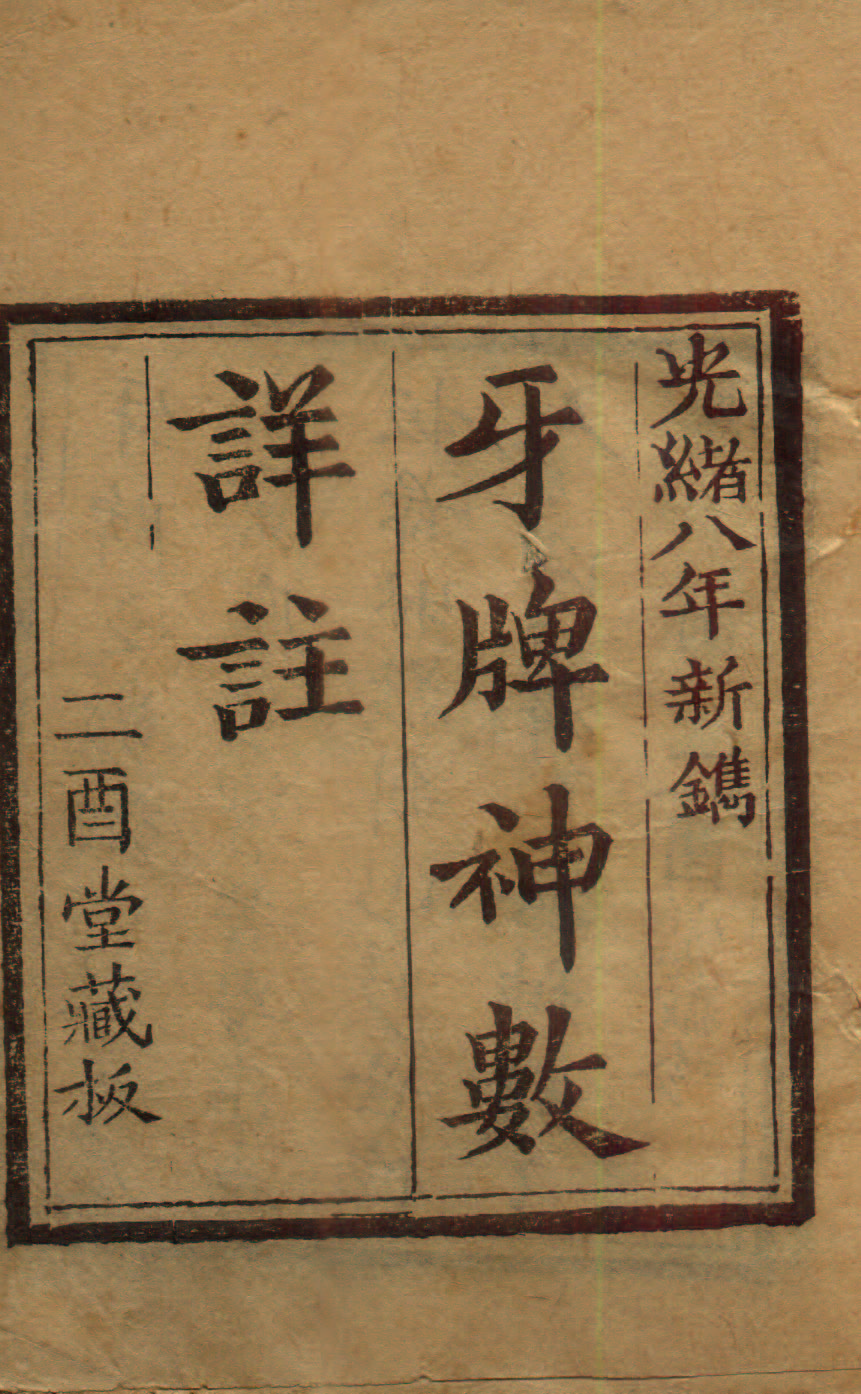 光緒八年新鐫
牙牌神數
詳註
二酉堂藏板